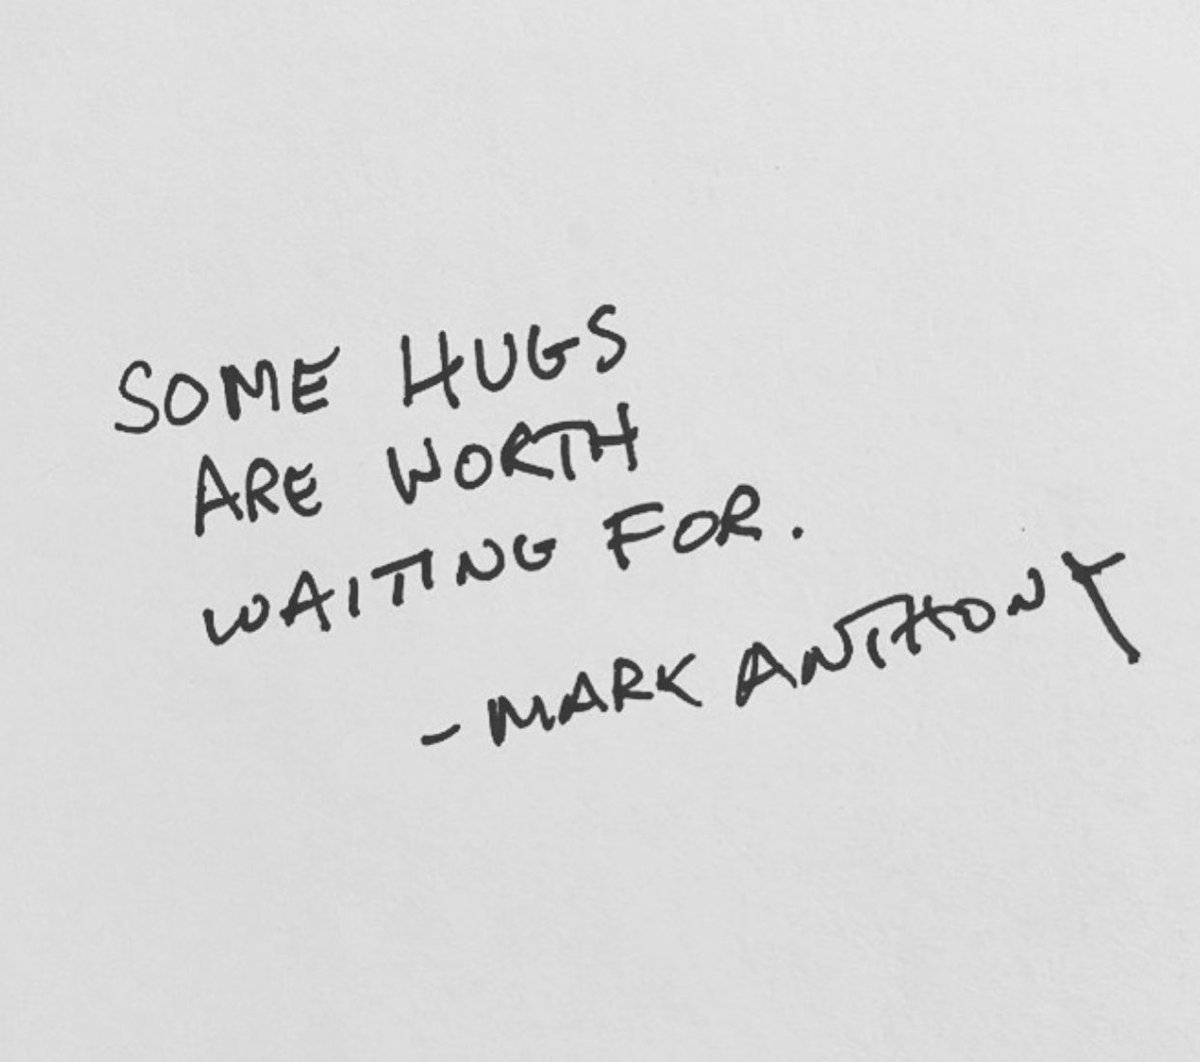 SOME HUGS
ARE WORTH
WAITING FOR.
- MARK ANTHONY